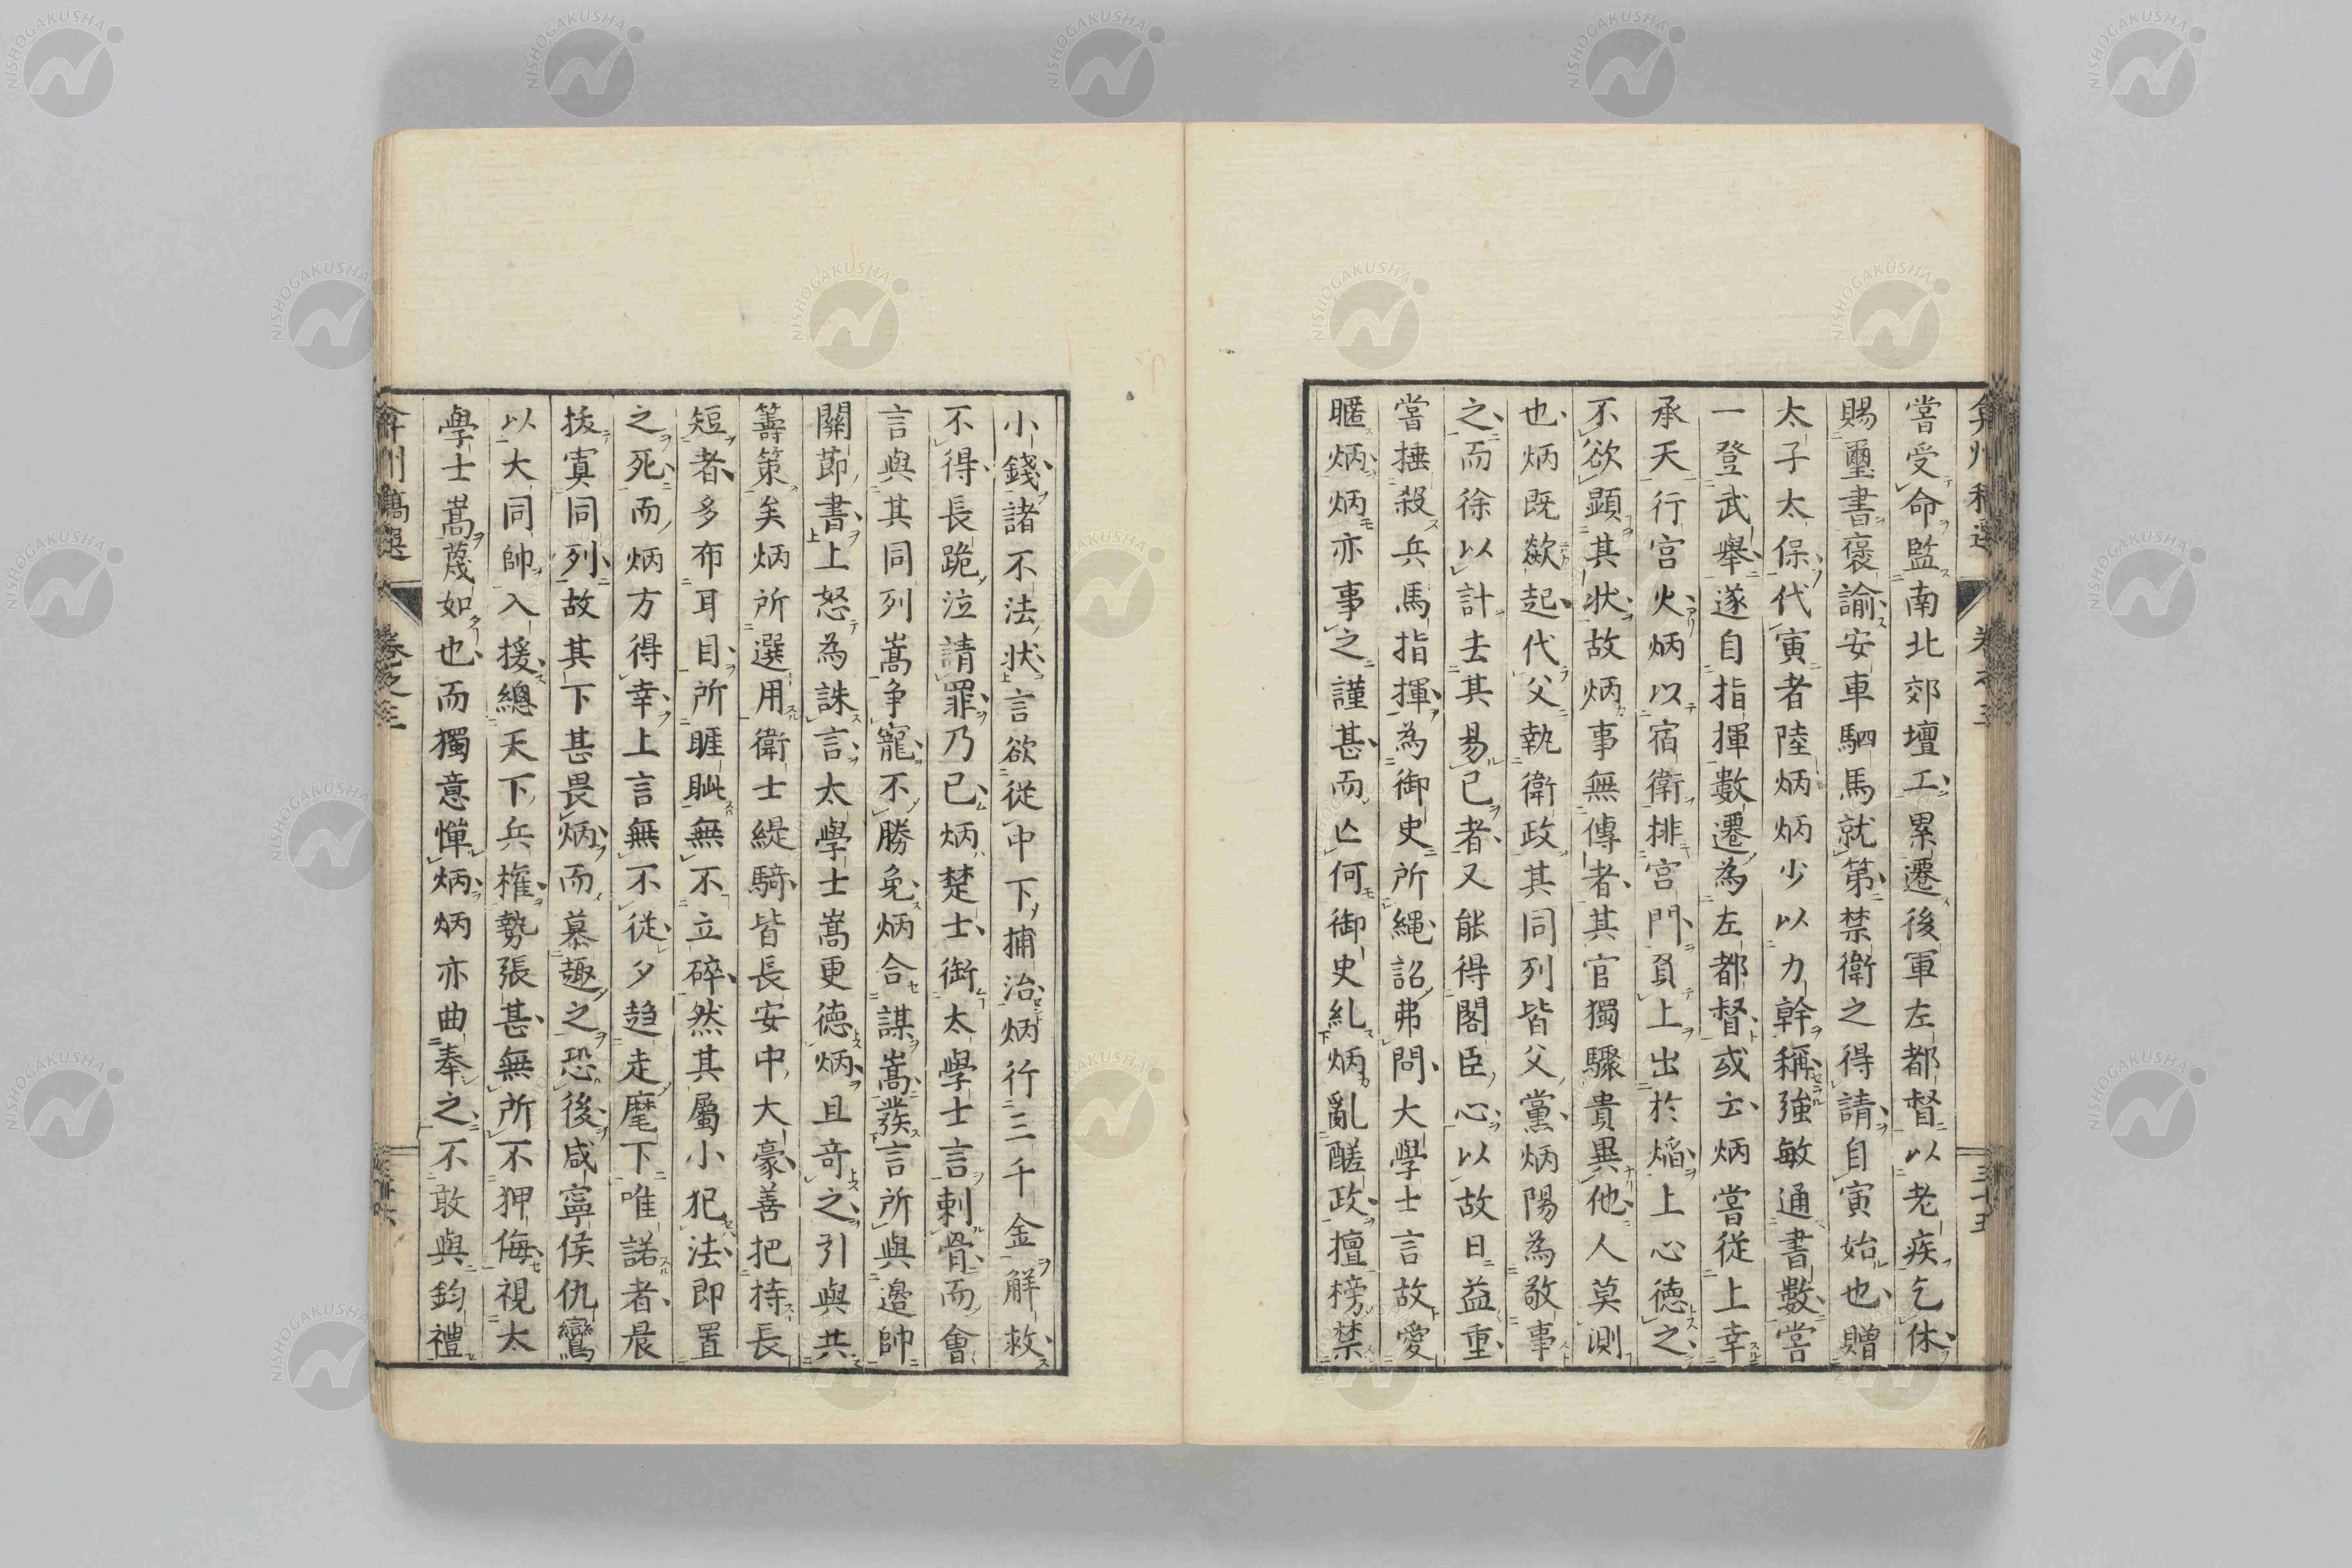 嘗受命監南北郊壇工累遷後軍左都督以老疾乞休
賜璽書褒諭安車駟馬就第禁衛之得請自寅始也贈
太子太保代寅者陸炳炳少以力幹稱強敏通書數嘗
一登武舉遂自指揮數遷為左都督或云炳嘗從上幸
承天行宮火炳以宿衛排宮門負上出於熖上心徳之
不欲顕其狀故炳事無傳者其官獨驟貴異他人莫測
也炳既歘起代父執衛政其同列皆父黨炳陽為敬事
之而徐以計去其易已者又能得閣臣心以故日益重
嘗捶殺兵馬指揮為御史所繩詔弗問大學士言故愛
暱炳炳亦事之謹甚而亾何御史糺炳亂醝政擅榜禁
小錢諸不法狀言欲從中下捕治炳行三千金觧救
不得長跪泣請罪乃已炳楚士御太學士言刺骨而會
言與其同列嵩争寵不勝免炳合謀嵩發言所與邊帥
關節書上怒為誅言太學士嵩更徳炳且竒之引與共
籌策矣炳所選用衛士緹騎皆長安中大豪善把持長
短者多布耳目所睚眦無不立碎然其屬小犯法即置
之死而炳方得幸上言無不從夕趋走麾下唯諾者晨
拔寘同列故其下甚畏炳而慕趣之恐後咸寧侯仇鸞
以大同帥入援總天下兵權勢張甚無所不狎侮視太
學士嵩蔑如也而獨意憚炳炳亦曲奉之不敢與鈞禮
弇州稿選
卷之三